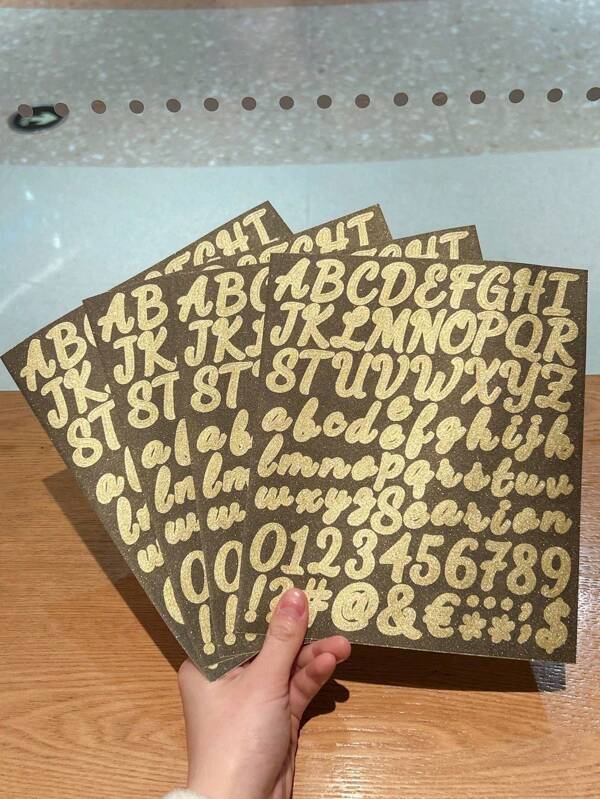 ABCDEFGHI
JKLMNOPQR
STUVWXYZ
abcdefghijk
lmnopqrstuv
wxyzSearion
0123456789
!?#@&€**;'$